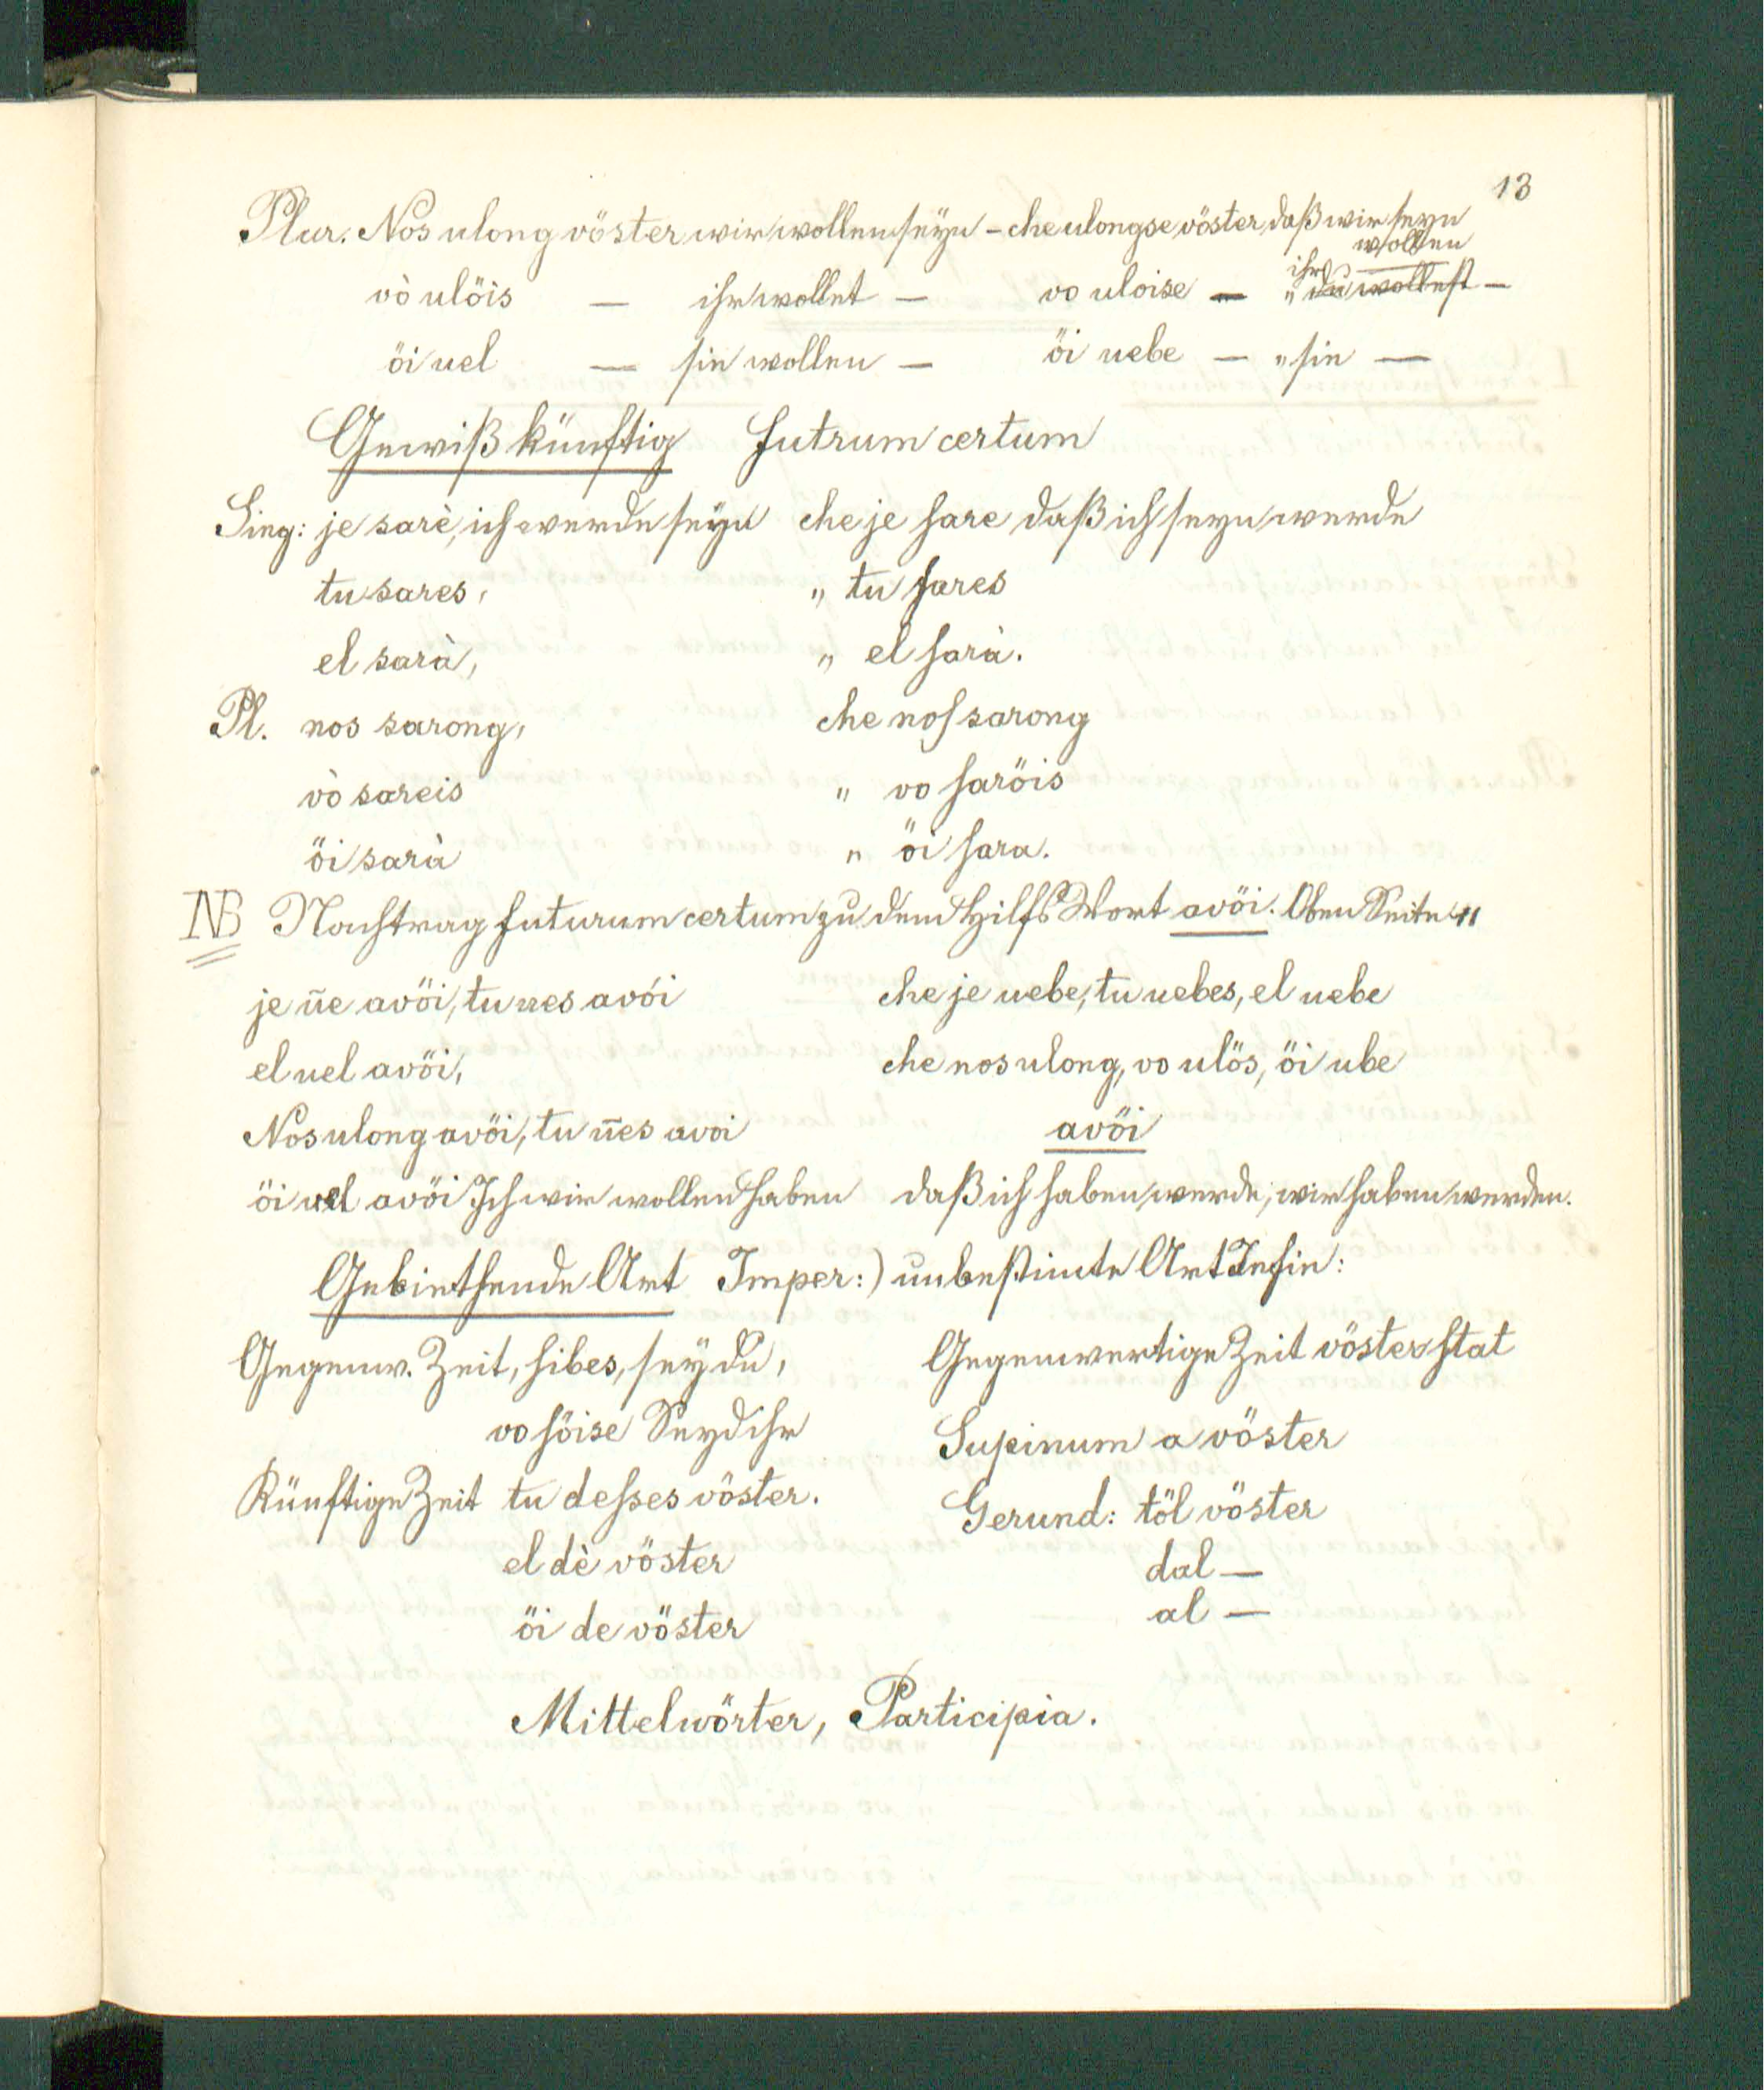 13
Plur. Nos ulong vöster wir wollen seÿn – che ulongse vöster, daß wir seyn
wollen
vò ulöis — ihr wollet — vo uloise — " ihr du wollest —
öi uel — sie wollen — öi uebe — " sie —
Gewiß künftig futrum certum
Sing: je sarè, ich werde seÿn che je sare daß ich seyn werde
tu sares, " tu sares
el sarà, " el sarà.
Pl. nos sarong, che nos sarong
vò sareis " vo saröis
öi sarà " öi sara.
NB Nachtrag futurum certum zu dem Hilfs Wort avöi. Oben Seite 11
je ūe avöi, tu ues avói che je uebe, tu uebes, el uebe
el uel avöi, che nos ulong, vo ulös, öi ube
Nos ulong avöi, tu ūes avoi avöi
öi uel avöi Ich wir wollen haben daß ich haben werde, wir haben werden.
Gebiethende Art Imper:) unbestimte Art Infin:
Gegenw. Zeit, sibes, seÿ du, Gegenwertige Zeit vöster stat
vo söise Seyd ihr Supinum a vöster
Künftige Zeit tu desses vöster. Gerund: töl vöster
el dè vöster dal —
öi de vöster al —
Mittelwörter, Participia.